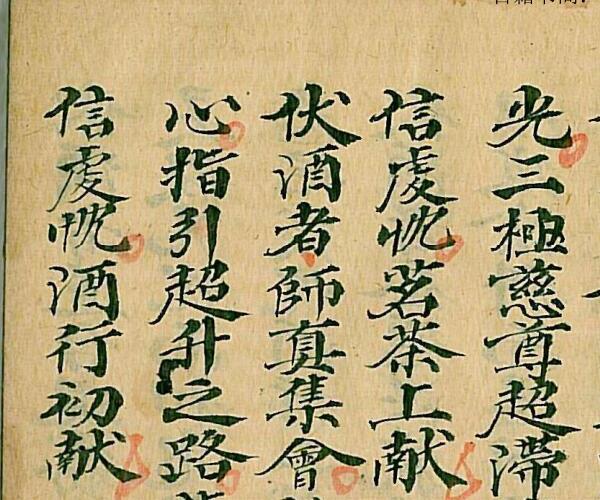 光三極慈尊超滞
信虔忱茗茶上献
伏酒者師真集會
心指引超升之路
信虔忱酒行初献